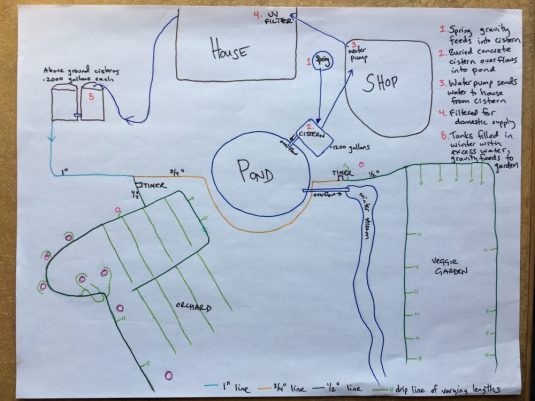 4. UV
FILTER
HOUSE
3.
water
pump
1.
Spring
SHOP
1. Spring gravity
feeds into cistern
2. Buried concrete
cistern overflows
into pond
3. Water pump sends
water to house
from cistern
4. Filtered for
domestic supply
5. Tanks filled in
winter with
excess water,
gravity feeds to
garden
Above ground cisterns
~2000 gallons each
5
2.
CISTERN
~1200 gallons
overflow
POND
1"
3/4"
TIMER
1/2"
TIMER
1/2"
overflow
winter stream
VEGGIE
GARDEN
ORCHARD
1" line
3/4" line
1/2" line
drip line of varying lengths